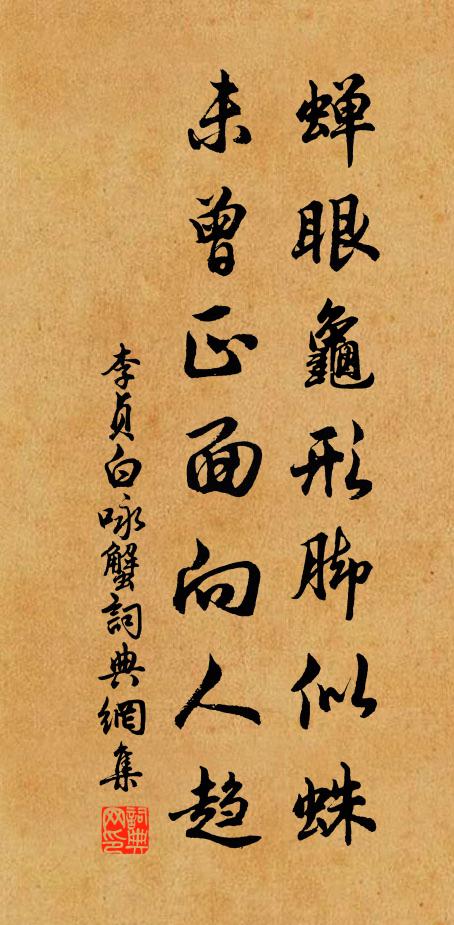 蝉眼龜形脚似蛛
未曾正面向人趋
李贞白咏蟹詞典網集
詞典
网印